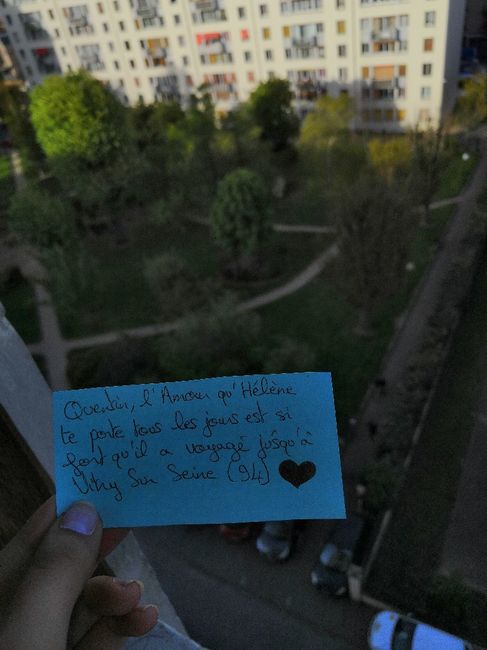 Quentin, l'Amour qu'Hélène
te porte tous les jours est si
fort qu'il a voyagé jusqu'à
Vitry Sur Seine (94) ♥